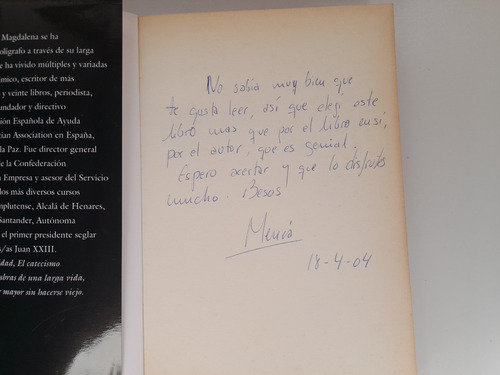 Magdalena se ha
olígrafo a través de su larga
e ha vivido múltiples y variadas
mico, escritor de más
y veinte libros, periodista,
undador y directivo
ión Española de Ayuda
cian Association en España,
la Paz. Fue director general
de la Confederación
Empresa y asesor del Servicio
los más diversos cursos
mplutense, Alcalá de Henares,
Santander, Autónoma
el primer presidente seglar
s/as Juan XXIII.
idad, El catecismo
abras de una larga vida,
r mayor sin hacerse viejo.
No sabía muy bien que
te gusta leer, así que elegí este
libro mas que por el libro ensi,
por el autor, que es genial.
Espero acertar y que lo disfrutes
mucho. Besos
Mencía
18-4-04